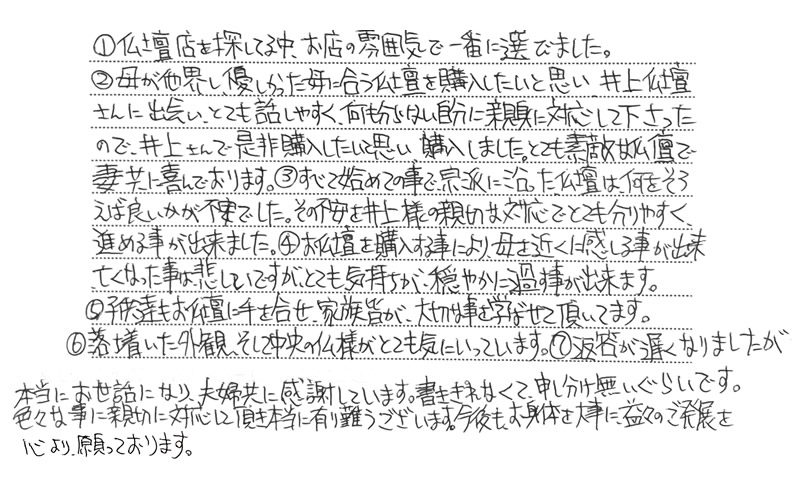 ①仏壇店を探してる中、お店の雰囲気で一番に選でました。
②母が他界し優しかった母に合う仏壇を購入したいと思い、井上仏壇
さんに出会い、とても話しやすく、何も分らない自分に親身に対応して下さった
ので、井上さんで是非購入したいと思い 購入しました。とても素敵な仏壇で
妻共に喜んでおります。③すべて始めての事で、宗派に沿った仏壇は、何をそろ
えば良いかが不安でした。その不安を井上様の親切な対応でとても分りやすく、
進める事が出来ました。④お仏壇を購入する事により、母を近くに感じる事が出来
亡くなった事は悲しいですが、とても気持ちが、穏やかに過す事が出来ます。
⑤子供達もお仏壇に手を合せ、家族皆が、大切な事を学ばせて頂いてます。
⑥落ち着いた外観、そして中央の仏様がとても気にいっています。⑦返答が遅くなりましたが
本当にお世話になり、夫婦共に感謝しています。書ききれなくて、申し分け無いぐらいです。
色々な事に親切に対応して頂き本当に有り難うございます。今後も、お身体を大事に、益々のご発展を
心より、願っております。